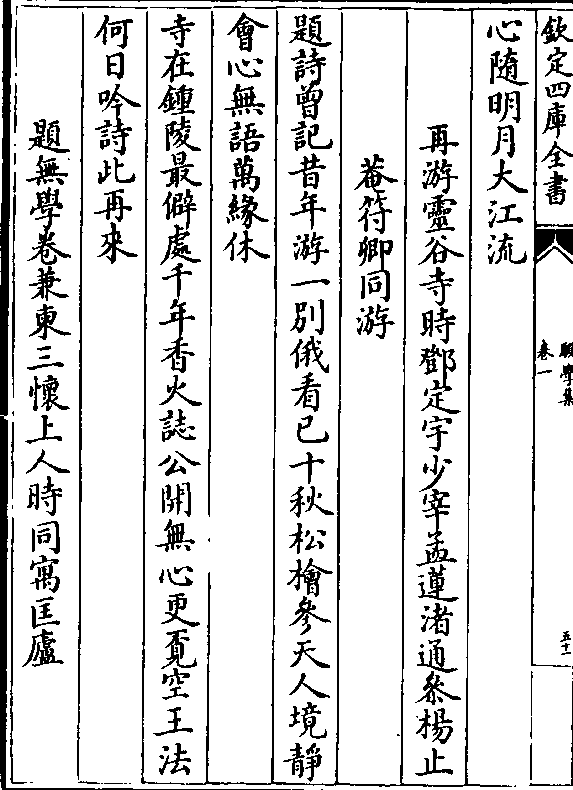 欽定四庫全書
願學集
卷一
五十一
心隨明月大江流
再游靈谷寺時鄧定宇少宰孟蓮渚通叅楊止
菴符卿同游
題詩曾記昔年游一別俄看已十秋松檜參天人境靜
會心無語萬緣休
寺在鍾陵最僻處千年香火誌公開無心更覔空王法
何日吟詩此再來
題無學卷兼東三懷上人時同寓匡廬